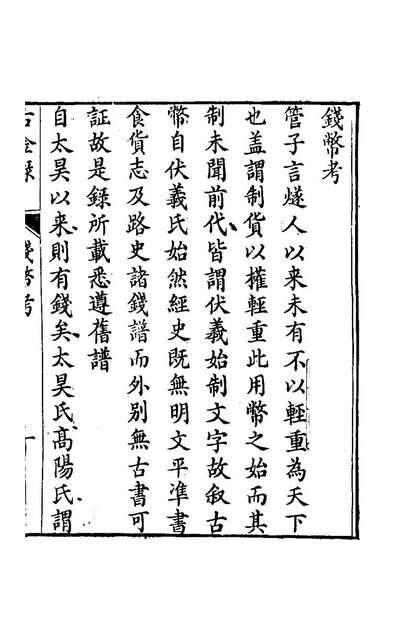 錢幣考
管子言燧人以来未有不以輕重為天下
也盖謂制貨以㩁輕重此用幣之始而其
制未聞前代皆謂伏羲始制文字故叙古
幣自伏羲氏始然經史既無明文平準書
食貨志及路史諸錢譜而外別無古書可
証故是錄所載悉遵舊譜
自太昊以来則有錢矣太昊氏髙陽氏謂
古金錄
錢幣考
一